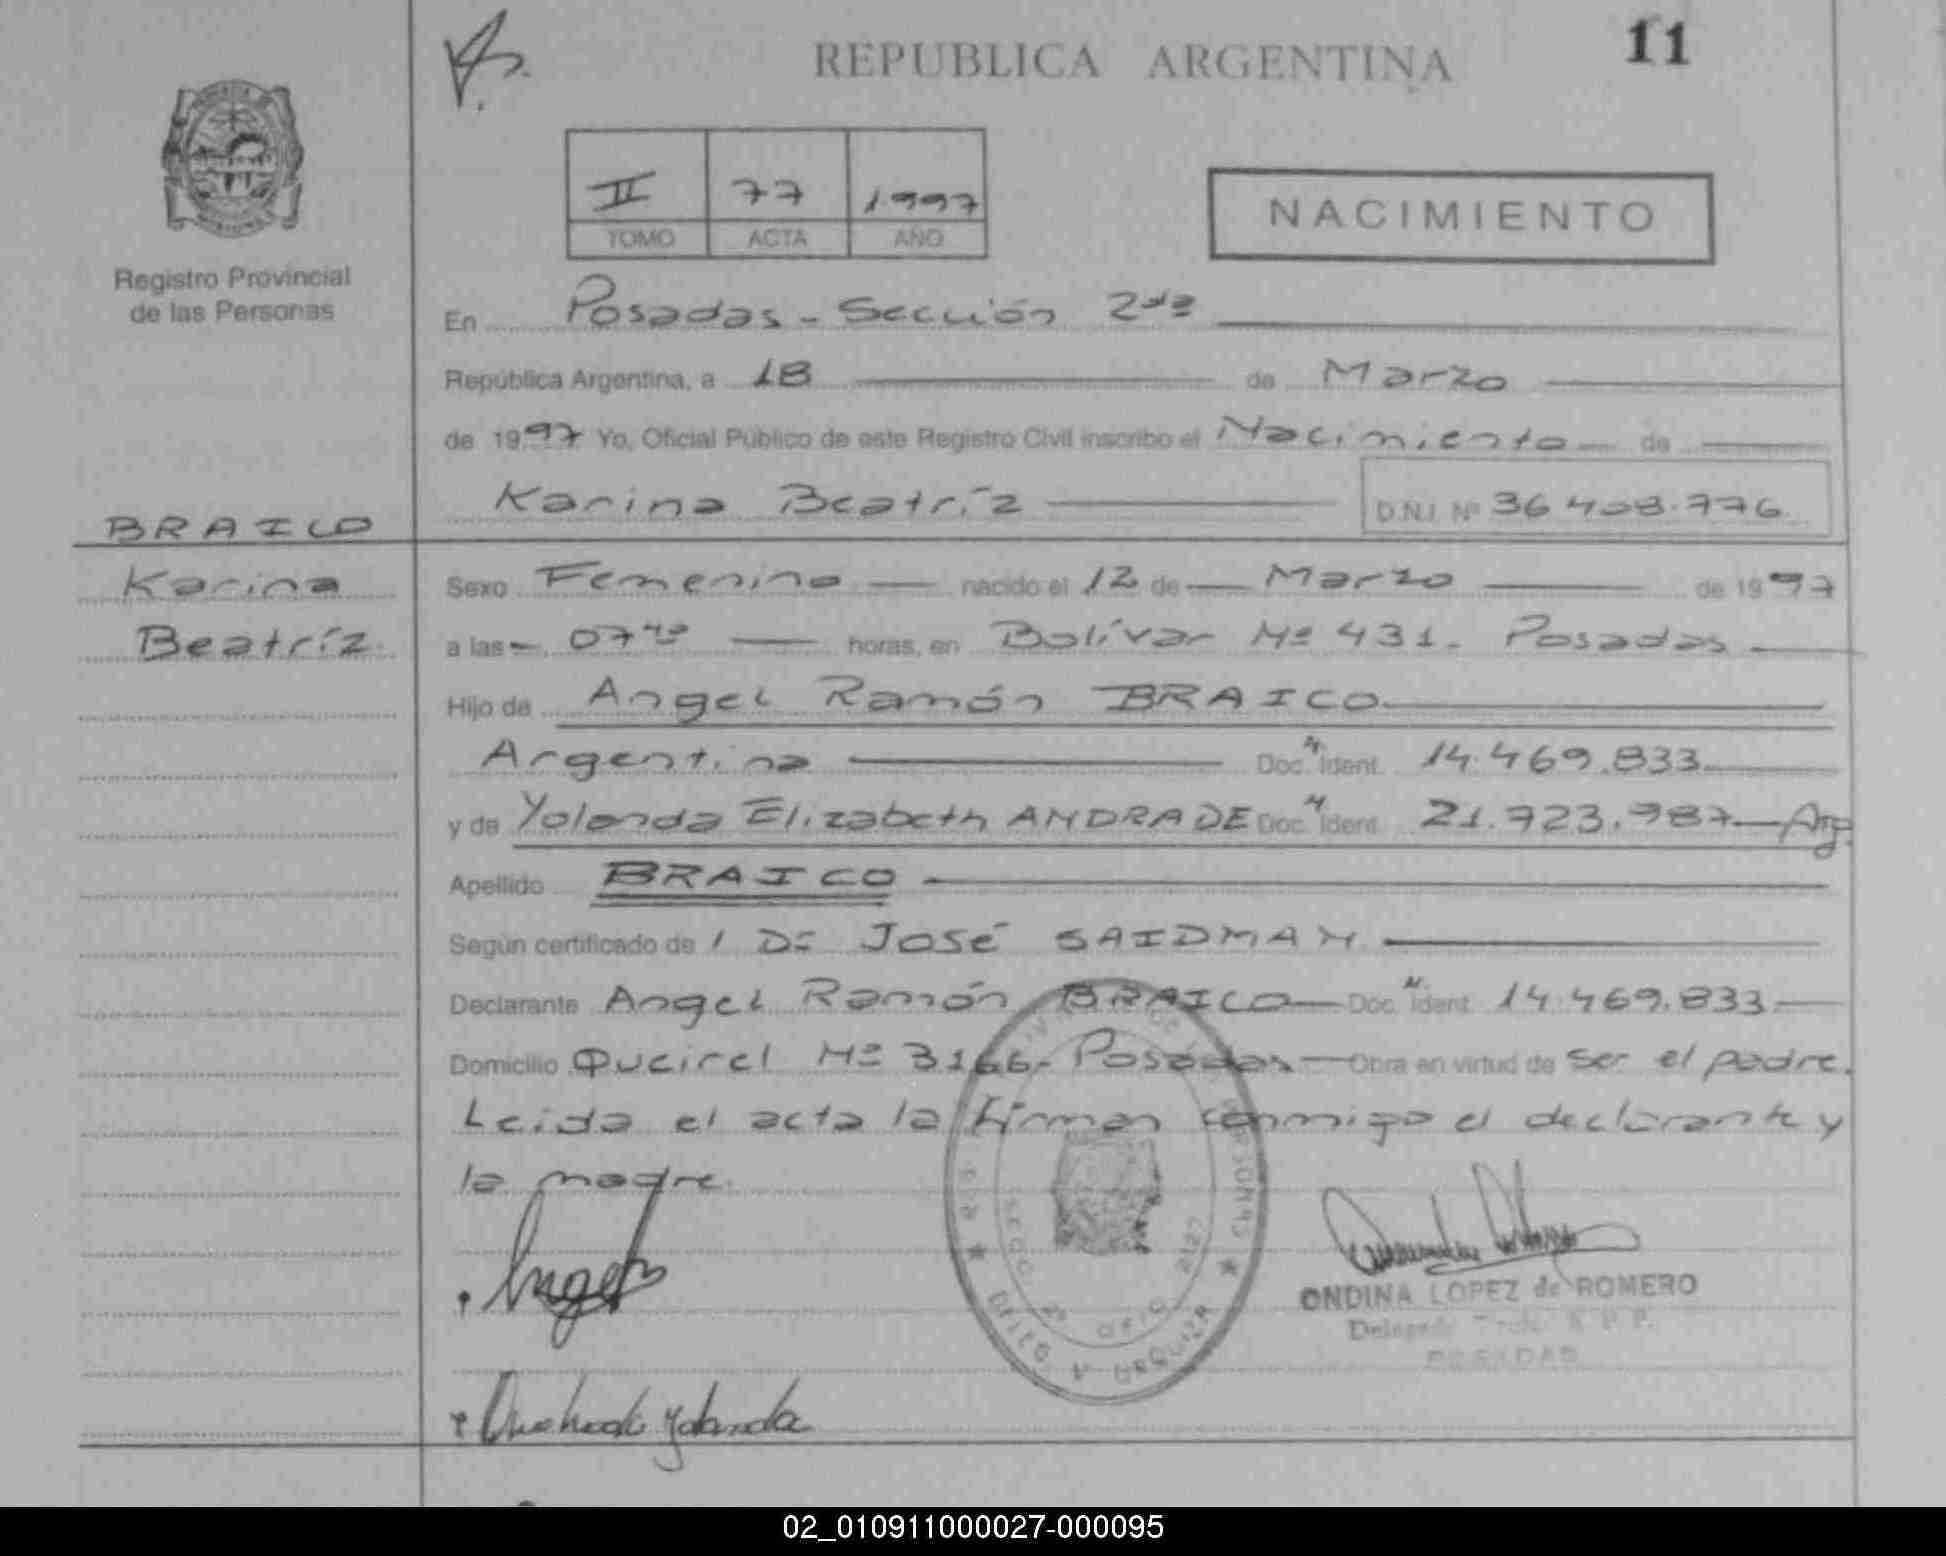 REPUBLICA ARGENTINA
11
II 77 1997
TOMO ACTA AÑO
NACIMIENTO
Registro Provincial
de las Personas
En Posadas - Sección 2da
República Argentina, a 18 de Marzo
de 1997 Yo, Oficial Público de este Registro Civil inscribo el Nacimiento de
Karina Beatríz D.N.I. Nº 36 408.776
BRAICO
Karina
Beatríz
Sexo Femenino nacido el 12 de Marzo de 1997
a las 07 horas, en Bolívar Nº 431. Posadas
Hijo de Angel Ramón BRAICO
Argentina Doc. Ident. 14.469.833
y de Yolanda Elizabeth ANDRADE Doc. Ident. 21.723.987 Arg.
Apellido BRAICO
Según certificado de / Dr José SAIDMAN
Declarante Angel Ramón BRAICO Doc. Ident. 14.469.833
Domicilio Queirel Nº 3166. Posadas Obra en virtud de ser el padre.
Leida el acta la firman conmigo el declarante y
la madre.
ONDINA LOPEZ de ROMERO
POSADAS
Yolanda
02_010911000027-000095